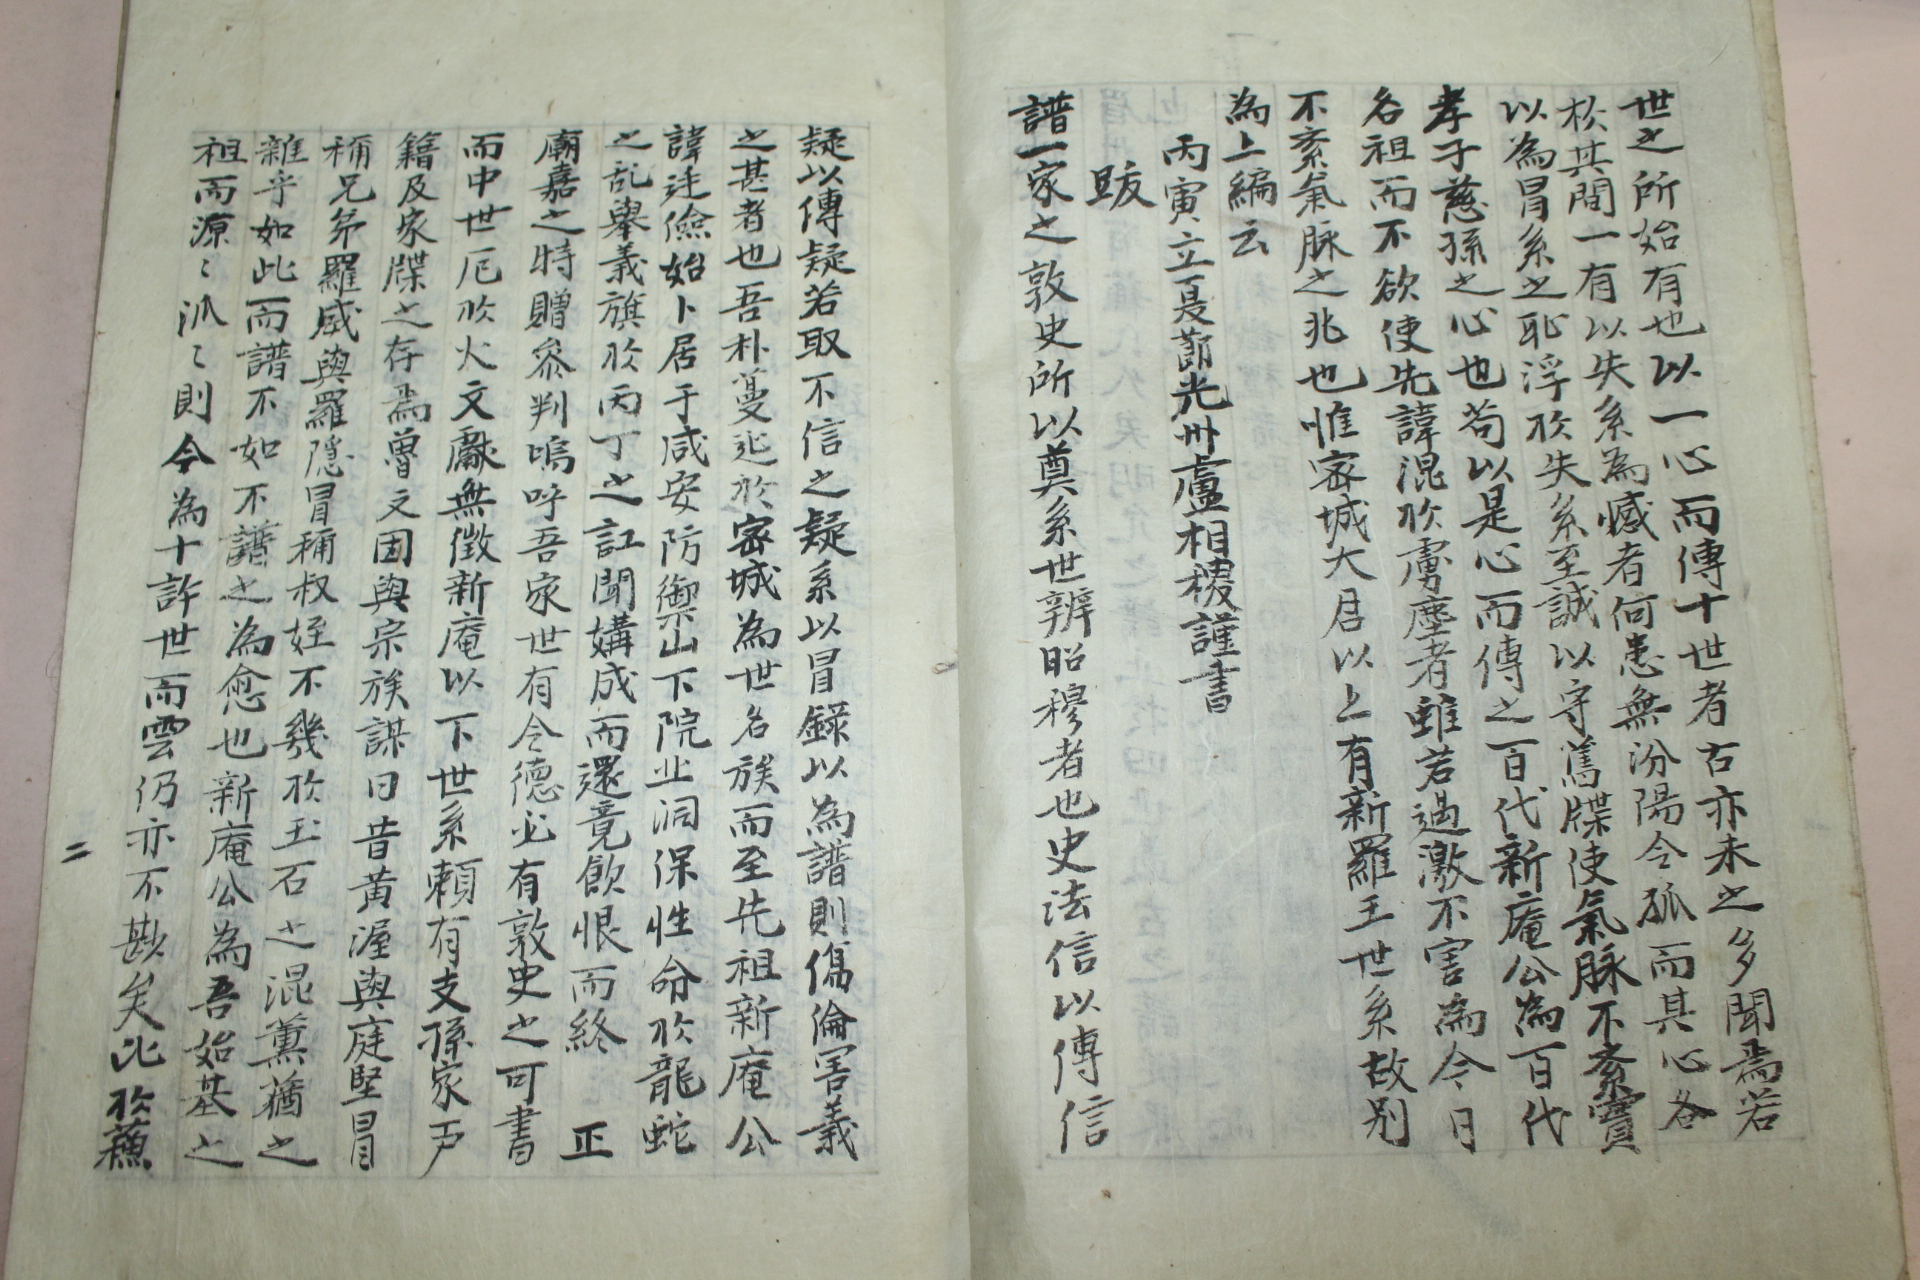 世之所始有也以一心而傳十世者古亦未之多聞焉若
於其間一有以失系為憾者何患無汾陽令狐而其心各
以為冐系之恥浮於失系至誠以守舊牒使氣脉不紊實
孝子慈孫之心也苟以是心而傳之百代新庵公為百代
名祖而不欲使先諱混於虜塵者雖若過激不害為今日
不紊氣脉之兆也惟密城大君以上有新羅王世系故别
為上編云
丙寅立夏節光州盧相稷謹書
跋
譜一家之敦史所以奠系世辨昭穆者也史法信以傳信
疑以傳疑若取不信之疑系以冐録以為譜則傷倫害義
之甚者也吾朴蔓延於密城為世名族而至先祖新庵公
諱廷儉始卜居于咸安防禦山下院北洞保性命於龍蛇
之乱舉義旗於丙丁之訌聞媾成而還竟飲恨而終 正
廟嘉之特贈叅判嗚呼吾家世有令德必有敦史之可書
而中世厄於火文獻無徵新庵以下世系頼有支孫家戸
籍及家牒之存焉曾文固與宗族謀曰昔黄渥與庭堅冐
稱兄弟羅威與羅隠冐稱叔姪不幾於玉石之混薰蕕之
雜乎如此而譜不如不譜之為愈也新庵公為吾始基之
祖而源〻派〻則今為十許世而雲仍亦不尠矣比於蘓
二